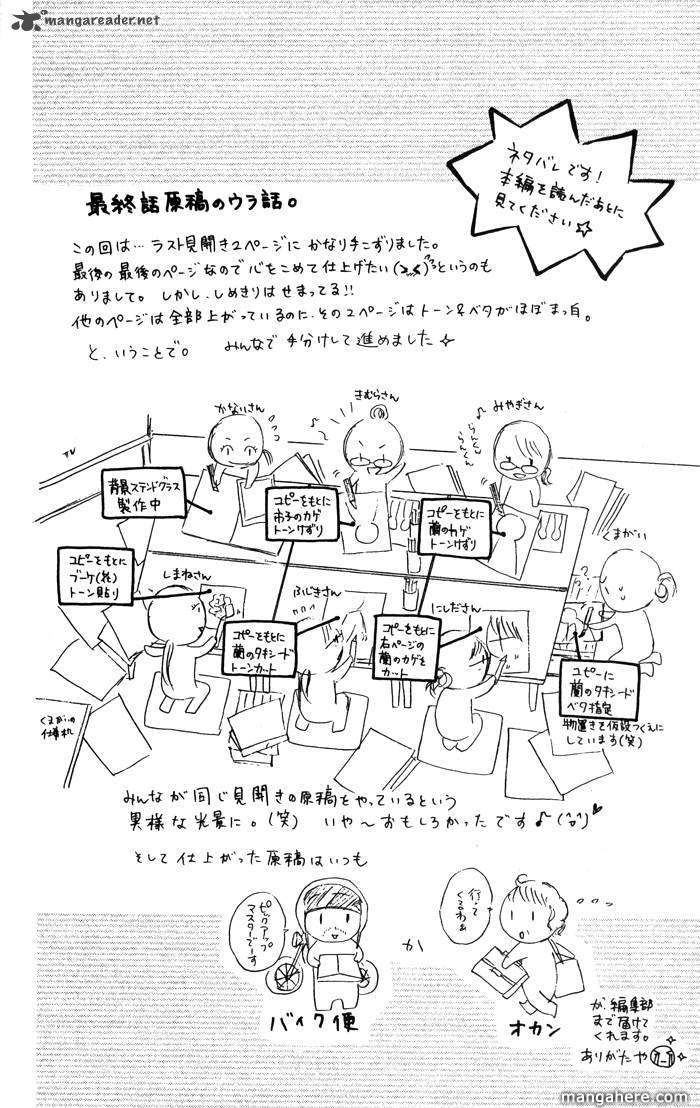 mangareader.net
ネタバレです!
本編を読んだあとに
見てください☆
最終話原稿のウラ話。
この回は…ラスト見開き2ページにかなり手こずりました。
最後の最後のページなので心をこめて仕上げたいというのも
ありまして。しかし、しめきりはせまってる!!
他のページは全部上がっているのに、その2ページはトーン&ベタがほぼまっ白。
と、いうことで。 みんなで手分けして進めました☆
かないさん
きむらさん
みやぎさん
♪らんらんらんらん
TV
背景ステンドグラス
製作中
コピーをもとに
市子のカゲ
トーンけずり
コピーをもとに
蘭のカゲ
トーンけずり
くまがい
コピーをもとに
ブーケ(花)
トーン貼り
しまねさん
ふじきさん
にしださん
コピーをもとに
蘭のタキシード
トーンカット
コピーをもとに
右ページの
蘭のカゲを
カット
コピーに
蘭のタキシード
ベタ指定
物置きを仮設つくえに
しています(笑)
くまがいの
仕事机
みんなが同じ見開きの原稿をやっているという
異様な光景に。(笑) いや〜おもしろかったです♪
そして仕上がった原稿はいつも
ピックアップ
マスターです
バイク便
か
行って
くるねぇ
オカン
が、編集部
まで届けて
くれます。
ありがたや
mangahere.com